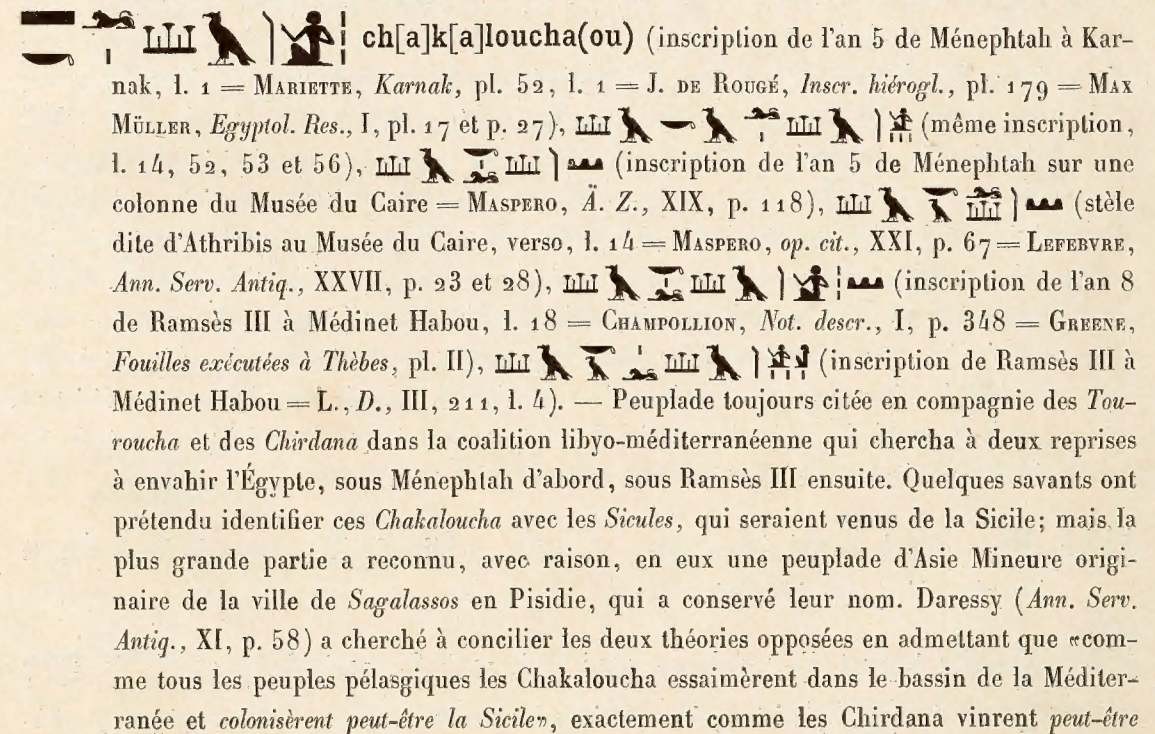 ch[a]k[a]loucha(ou) (inscription de l'an 5 de Ménephtah à Kar-
nak, l. 1 = MARIETTE, Karnak, pl. 52, l. 1 = J. DE ROUGÉ, Inscr. hiérogl., pl. 179 = MAX
MÜLLER, Egyptol. Res., I, pl. 17 et p. 27), (même inscription,
l. 14, 52, 53 et 56), (inscription de l'an 5 de Ménephtah sur une
colonne du Musée du Caire = MASPERO, Ä. Z., XIX, p. 118), (stèle
dite d'Athribis au Musée du Caire, verso, l. 14 = MASPERO, op. cit., XXI, p. 67 = LEFEBVRE,
Ann. Serv. Antiq., XXVII, p. 23 et 28), (inscription de l'an 8
de Ramsès III à Médinet Habou, l. 18 = CHAMPOLLION, Not. descr., I, p. 348 = GREENE,
Fouilles exécutées à Thèbes, pl. II), (inscription de Ramsès III à
Médinet Habou = L., D., III, 211, l. 4). — Peuplade toujours citée en compagnie des Tou-
roucha et des Chirdana dans la coalition libyo-méditerranéenne qui chercha à deux reprises
à envahir l'Égypte, sous Ménephtah d'abord, sous Ramsès III ensuite. Quelques savants ont
prétendu identifier ces Chakaloucha avec les Sicules, qui seraient venus de la Sicile; mais la
plus grande partie a reconnu, avec raison, en eux une peuplade d'Asie Mineure origi-
naire de la ville de Sagalassos en Pisidie, qui a conservé leur nom. Daressy (Ann. Serv.
Antiq., XI, p. 58) a cherché à concilier les deux théories opposées en admettant que «com-
me tous les peuples pélasgiques les Chakaloucha essaimèrent dans le bassin de la Méditer-
ranée et colonisèrent peut-être la Sicile», exactement comme les Chirdana vinrent peut-être